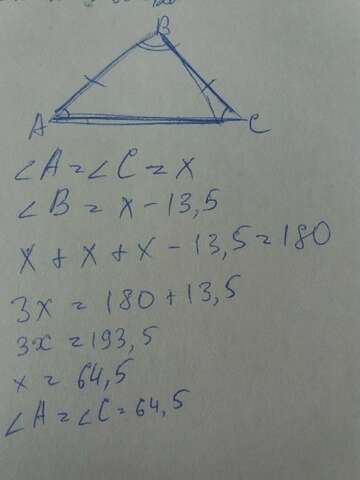 B
A C
∠A = ∠C = x
∠B = x - 13,5
x + x + x - 13,5 = 180
3x = 180 + 13,5
3x = 193,5
x = 64,5
∠A = ∠C = 64,5